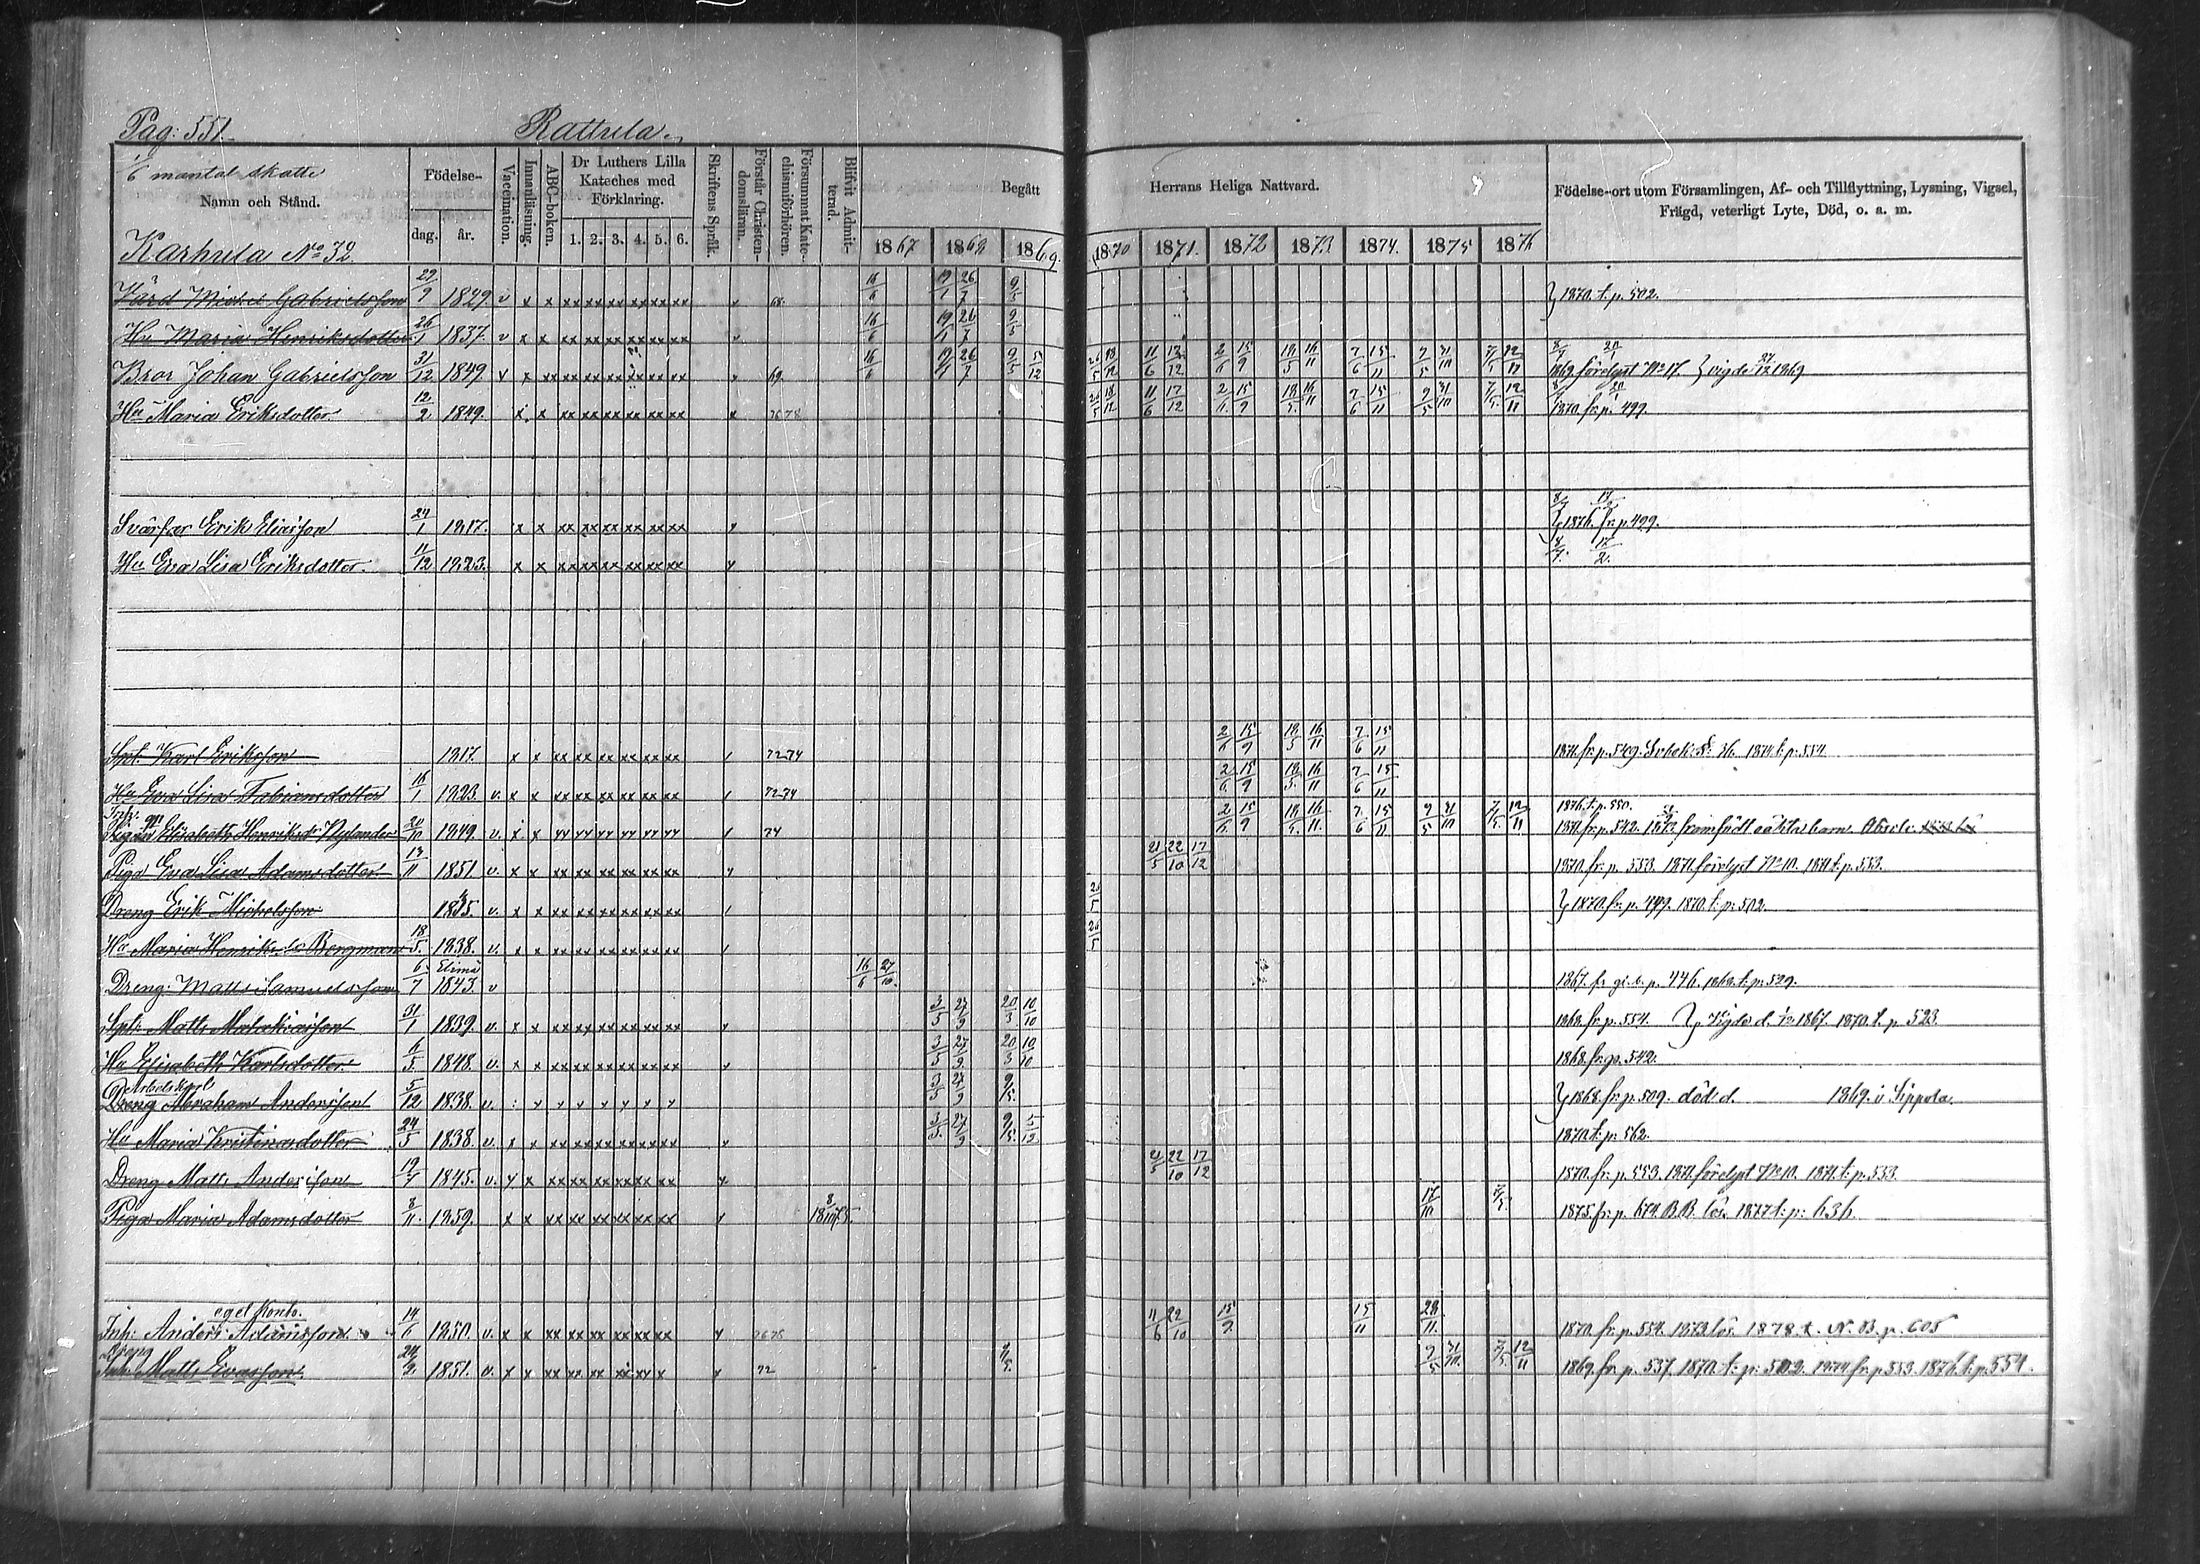 Pag: 551. Rattula.
1/6 mantal skatte
Namn och Stånd.
Födelse-
dag. år.
Vaccination.
Innanläsning.
ABC-boken.
Dr Luthers Lilla Kateches med Förklaring.
1. 2. 3. 4. 5. 6.
Skriftens Språk.
Förstår Christendomsläran.
Försummat Katechismiförhören.
Blifvit Admitterad.
Begått Herrans Heliga Nattvard.
1867 1868 1869. 1870 1871. 1872 1873. 1874. 1875 1876
Födelse-ort utom Församlingen, Af- och Tillflyttning, Lysning, Vigsel,
Frägd, veterligt Lyte, Död, o. a. m.
Karhula No 32.
Värd Michel Gabrielsson 29/9 1829. v x x xx xx xx xx xx xx 68. 16/6 19/1 26/7 9/5 1870. t. p. 502.
Hu Maria Henriksdotter 26/1 1837. v x x xx xx xx xx xx xx 16/6 19/1 26/7 9/5
Bror Johan Gabrielsson 31/12 1849 69. 16/6 19/1 26/7 9/5 5/12 11/6 2/6 15/9 18/5 16/11 7/6 15/11 9/5 31/10 7/5 12/11 1869. förelyst No 17. vigde 27/12 1869
Hu Maria Eriksdotter. 12/2 1849. x x xx xx xx xx xx xx x 76 78 11/6 17/12 2/6 15/9 18/5. 16/11 7/6 15/11 9/5 31/10 7/5. 12/11 1870. fr. p. 499.
Svärfar Erik Eliasson 24/1 1817. x x xx xx xx xx xx xx 1876. fr. p. 499.
Hu Eva Lisa Eriksdotter. 11/12 1823. x x xx xx xx xx xx xx
Karl Eriksson 1817. x x xx xx xx xx xx xx 72-74 2/6 15/9 18/5 16/11 7/6 15/11 1871. fr. p. 549. 1874. t. p. 554.
Hu Eva Lisa Fabiansdotter 16/1 1823. v. x x xx xx xx xx xx xx 72-74 2/6 15/9 18/5. 16/11 7/6 15/11
Elisabeth Henriksdr Nylander 20/10 1849. v. 74 2/6 15/9 18/5. 16/11. 7/6 15/11 9/5 31/10 7/5. 12/11 1876. t. p. 550.
1871. fr. p. 542. framfödt oäkta barn. Absolv.
Piga Eva Lisa Adamsdotter 13/11 1851. v. x x xx xx xx xx xx xx 21/5 22/10 17/12 1870. fr. p. 553. 1871. förelyst No 10. 1871. t. p. 533.
Dreng Erik Michelsson 1835. v. x x xx xx xx xx xx xx 26/5 1870. fr. p. 499. 1870. t. p. 502.
Hu Maria Henriksdr Bergman 18/5. 1838. v. x x xx xx xx xx xx xx 26/5
Dreng Matts Samuelsson 6/7 Elimä 1843. v 16/6 27/10. 1867. fr. p. 446. 1868. t. p. 529.
Matts Malakiasson 31/1 1839. v. x x xx xx xx xx xx xx 3/5 27/9 20/3 10/10 1868. fr. p. 554. Vigde d. 1867. 1870. t. p. 523.
Hu Elisabeth Karlsdotter 6/5. 1848. v. x x xx xx xx xx xx xx 3/5 27/9 20/3 10/10 1868. fr. p. 542.
Arbetskarl
Dreng Abraham Andersson 5/12 1838. v. 3/5 27/9 9/5. 1868. fr. p. 509. död d. 1869. i Sippola.
Hu Maria Kristinasdotter 24/5 1838. v. x x xx xx xx xx xx xx 3/5. 27/9 9/5. 5/12 1870. t. p. 562.
Dreng Matts Andersson 19/7 1845. v. 21/5 22/10 17/12 1870. fr. p. 553. 1871. förelyst No 10. 1871. t. p. 533.
Piga Maria Adamsdotter 8/11. 1859. x x xx xx xx xx xx xx 17/10 7/5. 1875. fr. p. 674. B.B. lös. 1877. t. p. 636.
eget Konto.
Inh: Anders Adamsson 14/6 1850. v. x x xx xx xx xx xx xx 76 78 11/6 22/10 15/9. 15/11 28/11. 1870. fr. p. 554. 1873. lös. 1878 t. N. B. p. 605
Dreng
Inh: Matts Evasson 24/2. 1851. v. x x xx xx xx xx 72 9/5. 9/5 31/10. 7/5. 12/11 1869. fr. p. 537. 1870. t. p. 502. 1874. fr. p. 553. 1876. t. p. 554.